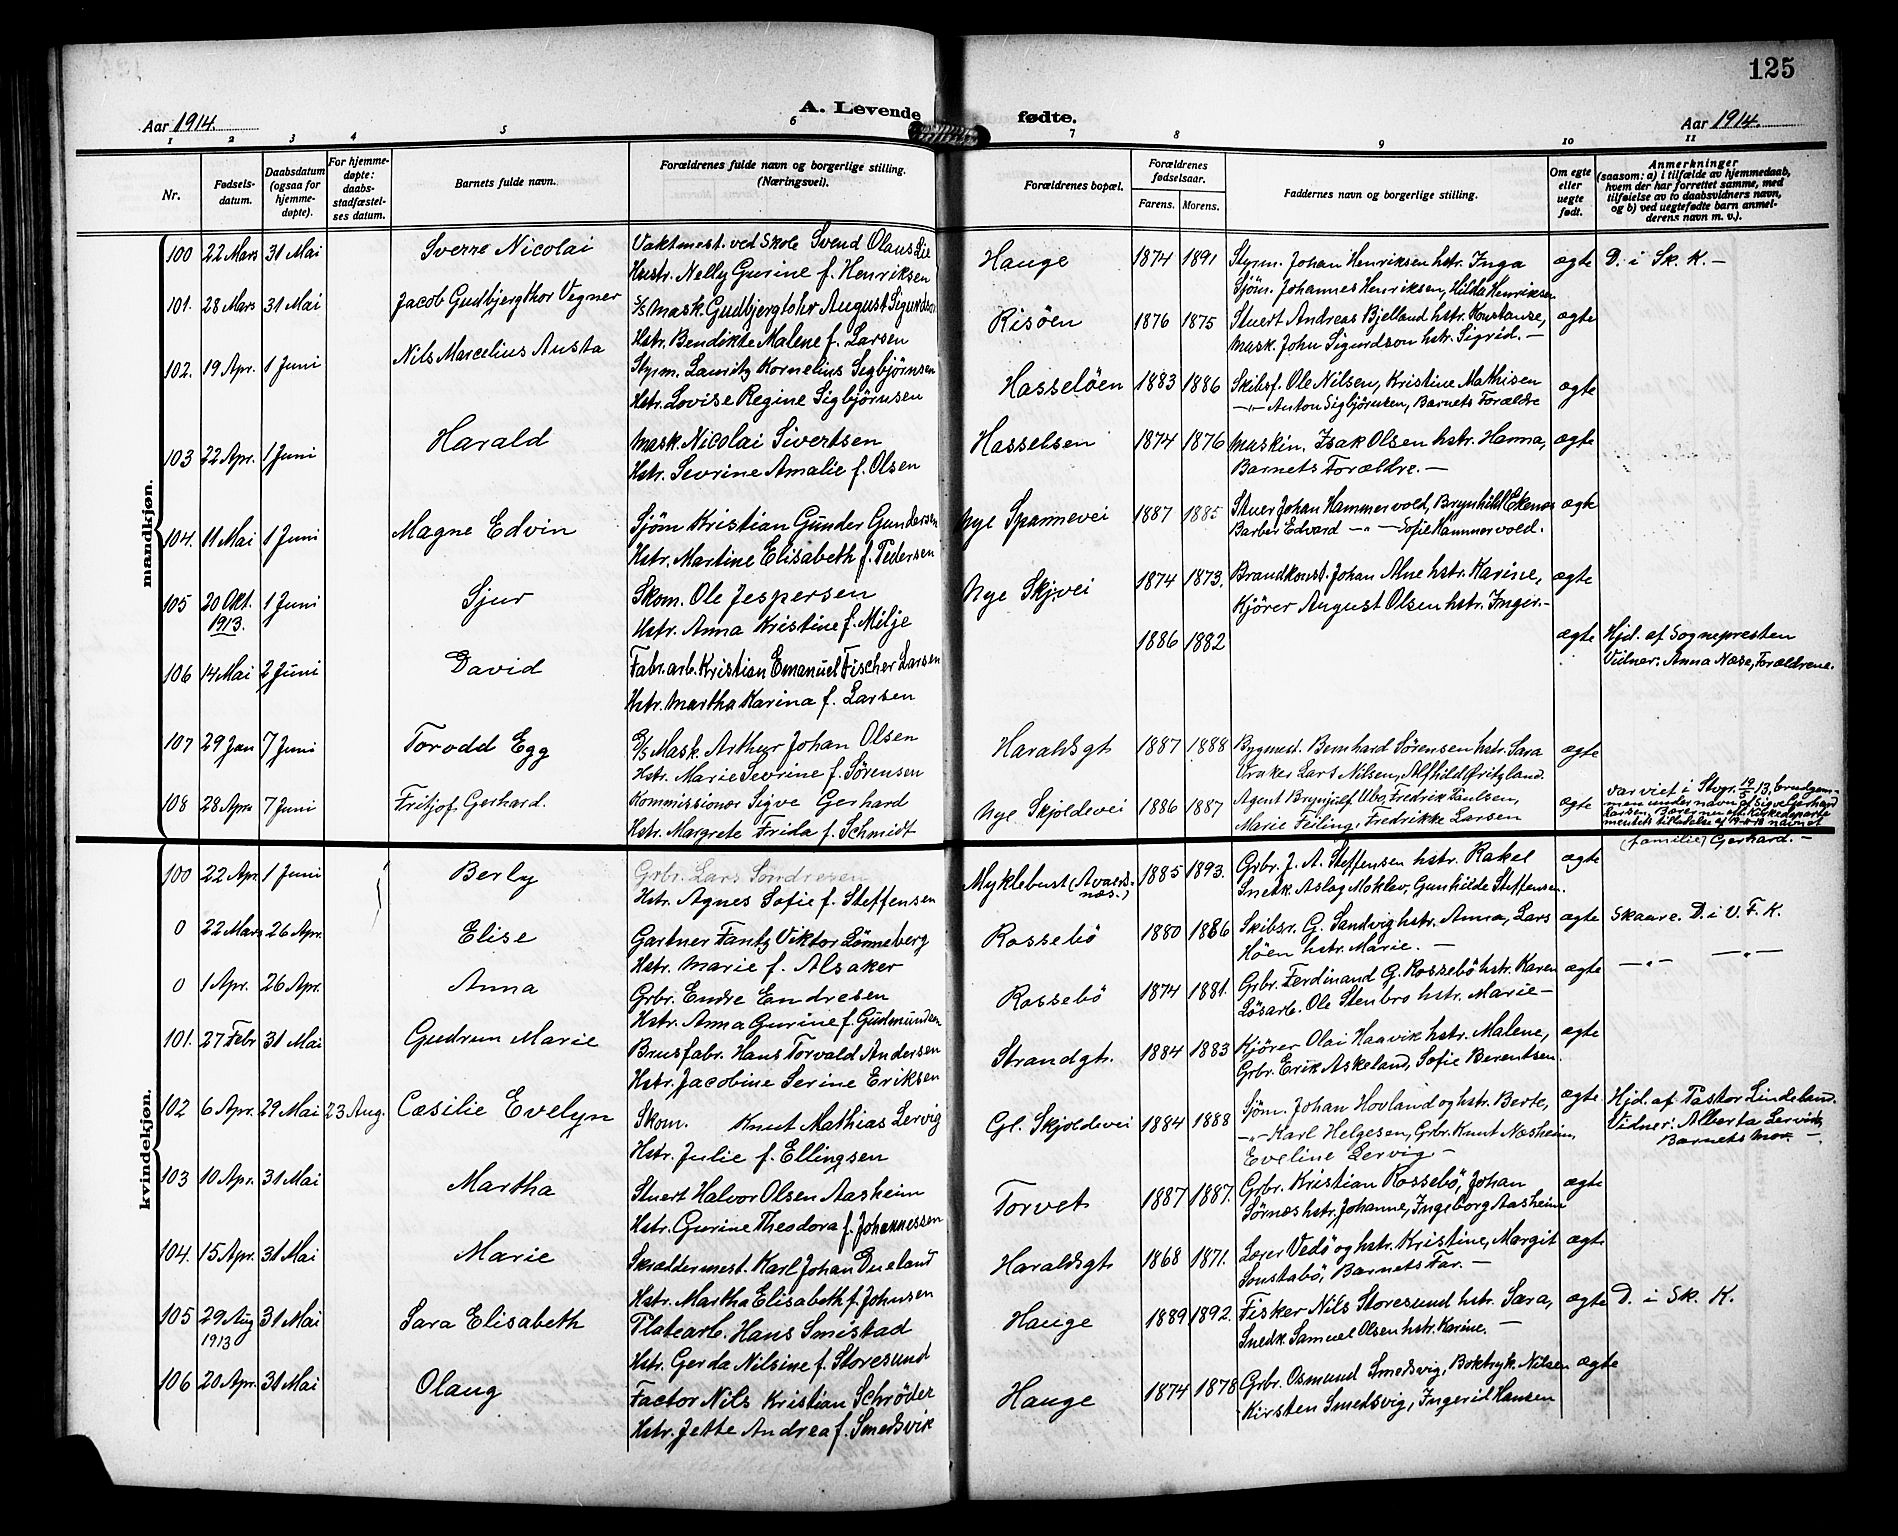 125
A. Levende fødte.
Aar 1914.
Aar 1914.
1 2 3 4 5 6 7 8 9 10 11
Nr.
Fødsels-
datum.
Daabsdatum
(ogsaa for
hjemme-
døpte).
For hjemme-
døpte:
daabs-
stadfæstel-
ses datum.
Barnets fulde navn.
Forældrenes fulde navn og borgerlige stilling.
(Næringsvei).
Forældrenes bopæl.
Forældrenes
fødselsaar.
Farens. Morens.
Faddernes navn og borgerlige stilling.
Om egte
eller
uegte
født.
Anmerkninger
(saasom: a) i tilfælde av hjemmedaab,
hvem der har forrettet samme, med
tilføielse av to daabsvidners navn,
og b) ved uegtefødte barn anmel-
derens navn m. v.).
mandkjøn.
100 22 Mars 31 Mai Sverre Nicolai Vaktmest. ved Skole Svend Olaus Lie
Hustr. Nelly Gurine f. Henriksen
Hauge 1874 1891 Styrm. Johan Henriksen hstr. Inga
Sjøm. Johannes Henriksen, Hilda Henriksen
ægte D. i Sk. K. –
101. 28 Mars 31 Mai Jacob Gudbjergthor Vegner S/S Mask. Gudbjergtohr August Sigurdson
Hstr. Bendikte Malene f. Larsen
Risöen 1876 1875 Stuert Andreas Bjelland hstr. Konstanse,
Mask. John Sigurdson hstr. Sigrid. –
ægte
102. 19 Apr. 1 Juni Nils Marcelius Austa Styrm. Lauritz Kornelius Sigbjørnsen
Hstr. Lovise Regine Sigbjörnsen
Hasselöen 1883 1886 Skibsf. Ole Nilsen, Kristine Mathisen
–"– Anton Sigbjörnsen, Barnets Forældre
ægte
103 22 Apr. 1 Juni Harald Mask. Nicolai Sivertsen
Hstr. Sevrine Amalie f. Olsen
Hasselöen 1874 1876 Maskin. Isak Olsen hstr. Hanna,
Barnets Forældre. –
ægte
104. 11 Mai 1 Juni Magne Edvin Sjøm Kristian Gunder Gundersen
Hstr. Martine Elisabeth f. Pedersen
Nye Spannevei 1887 1885 Stuer Johan Hammervold, Brynhild Ekenes
Barber Edvard –"– Sofie Hammervold.
ægte
105 20 Okt. 1913. 1 Juni Sjur Skom. Ole Jespersen
Hstr. Anna Kristine f. Milje
Nye Skjvei 1874 1873. Brandkonst. Johan Alne hstr. Karine,
Kjörer August Olsen hstr. Inger. –
ægte
106 14 Mai 2 Juni David Fabr. arb. Kristian Emanuel Fischer Larsen
Hstr. Martha Karina f. Larsen
1886 1882 ægte Hjd. af Sognepresten
Vidner: Anna Næse, Forældrene.
107 29 Jan 7 Juni Torodd Egg D/S Mask. Arthur Johan Olsen
Hstr. Marie Sevrine f. Sørensen
Haraldsgt 1887 1888 Bygmest. Bernhard Sörensen hstr. Sara
Vraker Lars Nilsen, Alfhild Fritzland.
ægte
108 28 Apr. 7 Juni Fritjof Gerhard. Kommissionær Sigve Gerhard
Hstr. Margrete Frida f. Schmidt
Nye Skjoldevei 1886 1887 Agent Brynjulf Ubo, Fredrik Paulsen,
Marie Feiling, Fredrikke Larsen
ægte var viet i Stvgr. 19/5 13, brudgom-
men under navn af Sigve Gerhard
Larsen,
(familie) Gerhard. –
kvindekjøn.
100 22 Apr. 1 Juni Berly Grbr. Lars Sondresen
Hstr. Agnes Sofie f. Steffensen
Myklebust (Avalds-
næs.) 1885 1893. Grbr. J. A. Steffensen hstr. Rakel
Snedk. Aslag Moklev, Gunhilde Steffensen.
ægte
0 22 Mars 26 Apr. Elise Gartner Frantz Viktor Lönneberg
Hstr. Marie f. Alsaker
Rossebö 1880 1886 Skibsr. G. Sandvig hstr. Anna, Lars
Höen hstr. Marie. –
ægte Skaare. D. i V. F. K.
0 1 Apr. 26 Apr. Anna Grbr. Endre Endresen
Hstr. Anna Gurine f. Gudmundsen
Rossebö 1874 1881. Grbr. Ferdinand G. Rossebö hstr. Karen
Løsarb. Ole Stenbro hstr. Marie –
ægte –"– –"–
101. 27 Febr 31 Mai Gudrun Marie Brusfabr. Hans Torvald Andersen
Hstr. Jacobine Serine Eriksen
Strandgt. 1884 1883 Kjörer Olai Haavik hstr. Malene,
Grbr. Erik Askeland, Sofie Berentsen.
ægte
102 6 Apr. 29 Mai 23 Aug. Cæsilie Evelyn Skom. Knut Mathias Lervig
Hstr. Julie f. Ellingsen
Gl. Skjoldevei 1884 1888 Sjøm. Johan Hovland og hstr. Berte,
–"– Karl Helgesen, Grbr. Knut Næsheim,
Eveline Lervig –
ægte Hjd. af Pastor Lindeland.
Vidner: Alberta Lervig
Barnets Mor. –
103 10 Apr. 31 Mai Martha Stuert Halvor Olsen Aasheim
Hstr. Gurine Theodora f. Johannessen
Torvet 1887 1887. Grbr. Kristian Rossebö, Johan
Sörnæs hstr. Johanne, Ingeborg Aasheim
ægte
104. 15 Apr. 31 Mai Marie Skræddermest. Karl Johan Dueland
Hstr. Martha Elisabeth f. Johnsen
Haraldsgt 1868 1871. Lærer Vedö og hstr. Kristine, Margit
Sonstabö, Barnets Far. –
ægte
105 29 Aug 1913 31 Mai Sara Elisabeth Platearb. Hans Smistad
Hstr. Gerda Nilsine f. Storesund
Hauge 1889 1892. Fisker Nils Storesund hstr. Sara,
Snedk. Samuel Olsen hstr. Karine. –
ægte D. i Sk. K.
106 20 Apr. 31 Mai Olaug Factor Nils Kristian Schröder
Hstr. Jette Andrea f. Smedsvik
Hauge 1874 1878 Grbr. Osmund Smedsvig, Boktryk. Nilsen
Kirsten Smedsvig, Ingerid Hansen
ægte